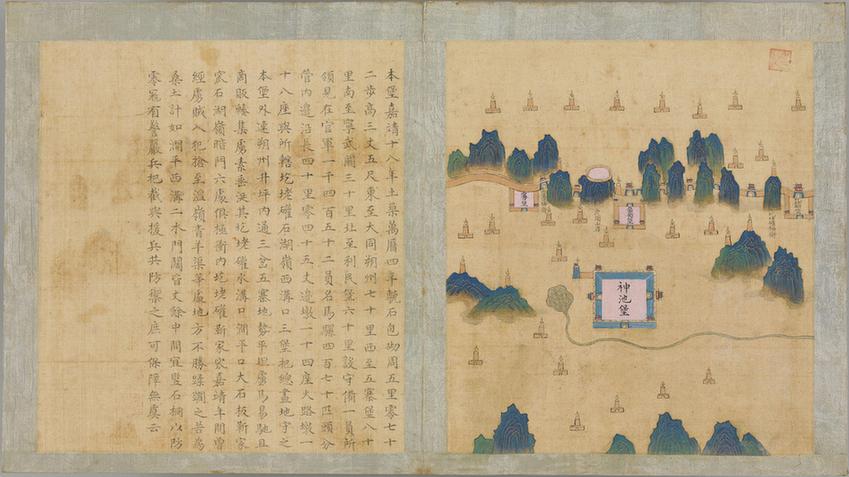 本堡嘉靖十八年土築萬曆四年甃石包砌周五里零七十
二步高三丈五尺東至大同朔州七十里西至五寨堡八十
里南至寧武關三十里北至利民堡六十里設守備一員所
領見在官軍一千四百五十二員名馬騾四百七十匹頭分
管內邊沿長四十里零四十五丈邊墩一十四座火路墩一
十八座與所轄圪㘬礶石湖嶺西溝口三堡把總畫地守之
本堡外連朔州井坪內通三岔五寨地勢平坦虜馬易馳且
商販輳集虜素垂涎其圪㘬礶水溝口澗平口大石坂靳家
窊石湖嶺暗門六處俱極衝內圪㘬礶靳家窊嘉靖年間曾
經虜賊入犯搶至溫嶺青羊渠等處地方不勝蹂躪之苦為
桑土計如澗平西溝二水門闊皆丈餘中間宜豎石柵以防
零寇有警嚴兵把截與援兵共防禦之庶可保障無虞云
神池堡